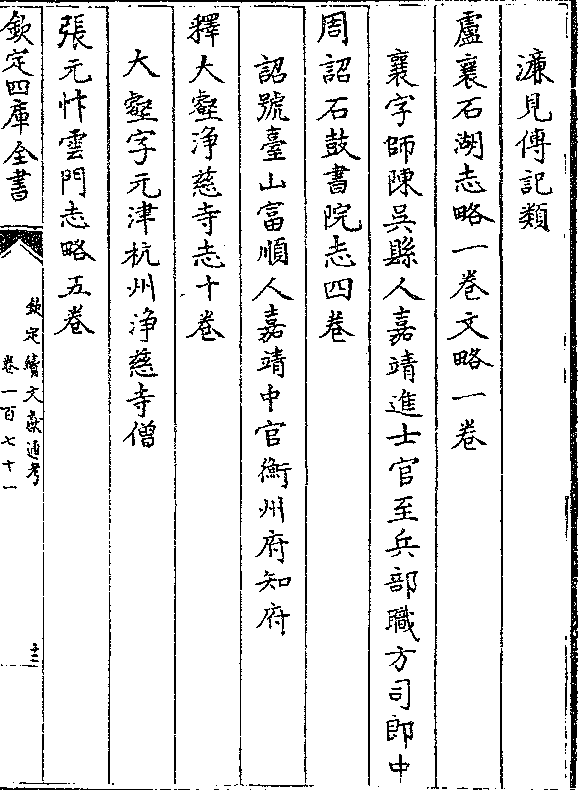 濂見傳記類
盧襄石湖志略一卷文略一卷
襄字師陳吳縣人嘉靖進士官至兵部職方司郎中
周詔石鼓書院志四卷
詔號臺山富順人嘉靖中官衡州府知府
釋大壑淨慈寺志十卷
大壑字元津杭州淨慈寺僧
張元忭雲門志略五卷
欽定四庫全書
欽定續文獻通考
卷一百七十一
十二